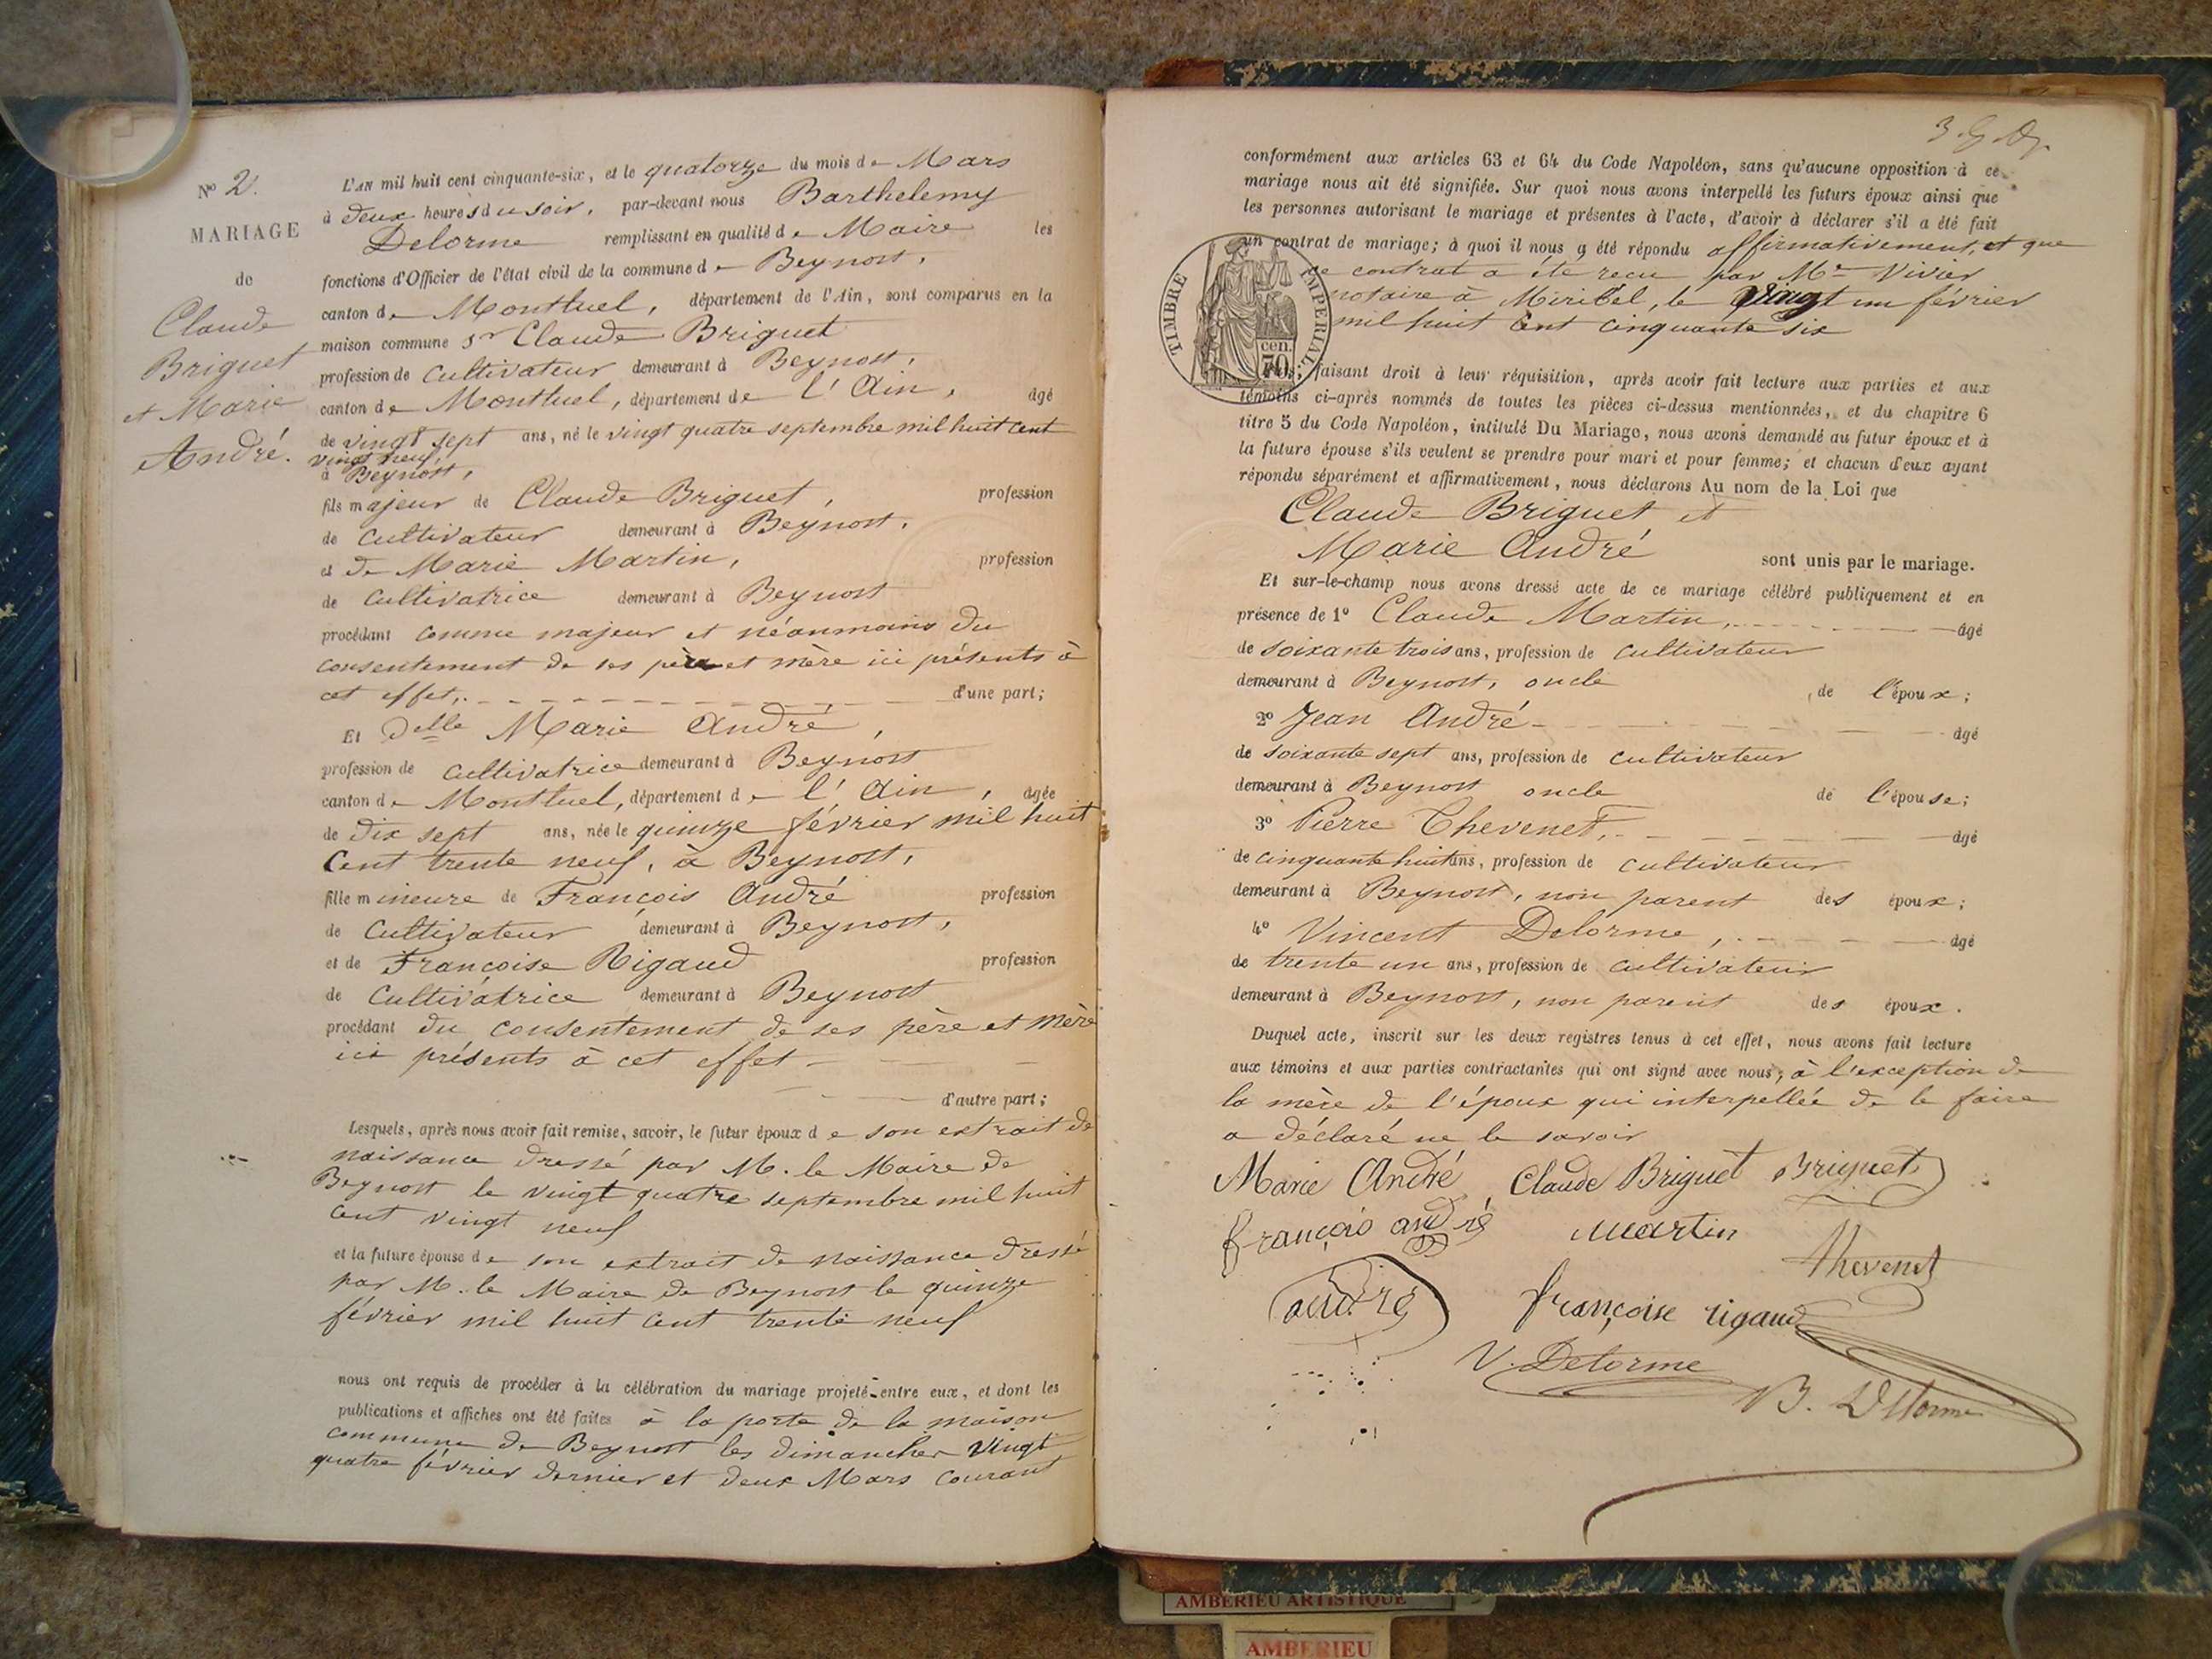 Nº 2.
MARIAGE
de
Claude
Briguet
et Marie
André.
L'AN mil huit cent cinquante-six, et le quatorze du mois de Mars
à deux heures du soir, par-devant nous Barthelemy
Delorme remplissant en qualité de Maire les
fonctions d'Officier de l'état civil de la commune de Beynost,
canton de Montluel, département de l'Ain, sont comparus en la
maison commune Sr Claude Briguet
profession de cultivateur demeurant à Beynost,
canton de Montluel, département de l'Ain, âgé
de vingt sept ans, né le vingt quatre septembre mil huit cent
vingt neuf,
à Beynost,
fils majeur de Claude Briguet, profession
de cultivateur demeurant à Beynost,
et de Marie Martin, profession
de cultivatrice demeurant à Beynost
procédant comme majeur et néanmoins du
consentement de ses père et mère ici présents à
cet effet, d'une part;
Et Delle Marie André,
profession de cultivatrice demeurant à Beynost
canton de Montluel, département de l'Ain, âgée
de dix sept ans, née le quinze février mil huit
cent trente neuf, à Beynost,
fille mineure de François André profession
de cultivateur demeurant à Beynost,
et de Françoise Rigaud profession
de cultivatrice demeurant à Beynost
procédant du consentement de ses père et mère
ici présents à cet effet
d'autre part;
Lesquels, après nous avoir fait remise, savoir, le futur époux de son extrait de
naissance dressé par M. le Maire de
Beynost le vingt quatre septembre mil huit
cent vingt neuf
et la future épouse de son extrait de naissance dressé
par M. le Maire de Beynost le quinze
février mil huit cent trente neuf
nous ont requis de procéder à la célébration du mariage projeté entre eux, et dont les
publications et affiches ont été faites à la porte de la maison
commune de Beynost les dimanches vingt
quatre février dernier et deux Mars courant
conformément aux articles 63 et 64 du Code Napoléon, sans qu'aucune opposition à ce
mariage nous ait été signifiée. Sur quoi nous avons interpellé les futurs époux ainsi que
les personnes autorisant le mariage et présentes à l'acte, d'avoir à déclarer s'il a été fait
un contrat de mariage; à quoi il nous a été répondu affirmativement, et que
ce contrat a été reçu par Me Vivier
notaire à Miribel, le vingt un février
mil huit cent cinquante six
TIMBRE IMPERIAL
70 cen.
faisant droit à leur réquisition, après avoir fait lecture aux parties et aux
témoins ci-après nommés de toutes les pièces ci-dessus mentionnées, et du chapitre 6
titre 5 du Code Napoléon, intitulé Du Mariage, nous avons demandé au futur époux et à
la future épouse s'ils veulent se prendre pour mari et pour femme; et chacun d'eux ayant
répondu séparément et affirmativement, nous déclarons Au nom de la Loi que
Claude Briguet et
Marie André sont unis par le mariage.
Et sur-le-champ nous avons dressé acte de ce mariage célébré publiquement et en
présence de 1º Claude Martin, âgé
de soixante trois ans, profession de cultivateur
demeurant à Beynost, oncle de l'époux;
2º Jean André âgé
de soixante sept ans, profession de cultivateur
demeurant à Beynost oncle de l'épouse;
3º Pierre Thevenet, âgé
de cinquante huit ans, profession de cultivateur
demeurant à Beynost, non parent des époux;
4º Vincent Delorme, âgé
de trente un ans, profession de cultivateur
demeurant à Beynost, non parent des époux.
Duquel acte, inscrit sur les deux registres tenus à cet effet, nous avons fait lecture
aux témoins et aux parties contractantes qui ont signé avec nous, à l'exception de
la mère de l'époux qui interpellée de le faire
a déclaré ne le savoir
Marie André Claude Briguet Briguet
françois andré martin
thevenet
andré françoise rigaud
V. Delorme
B. Delorme
AMBERIEU ARTISTIQUE
AMBERIEU